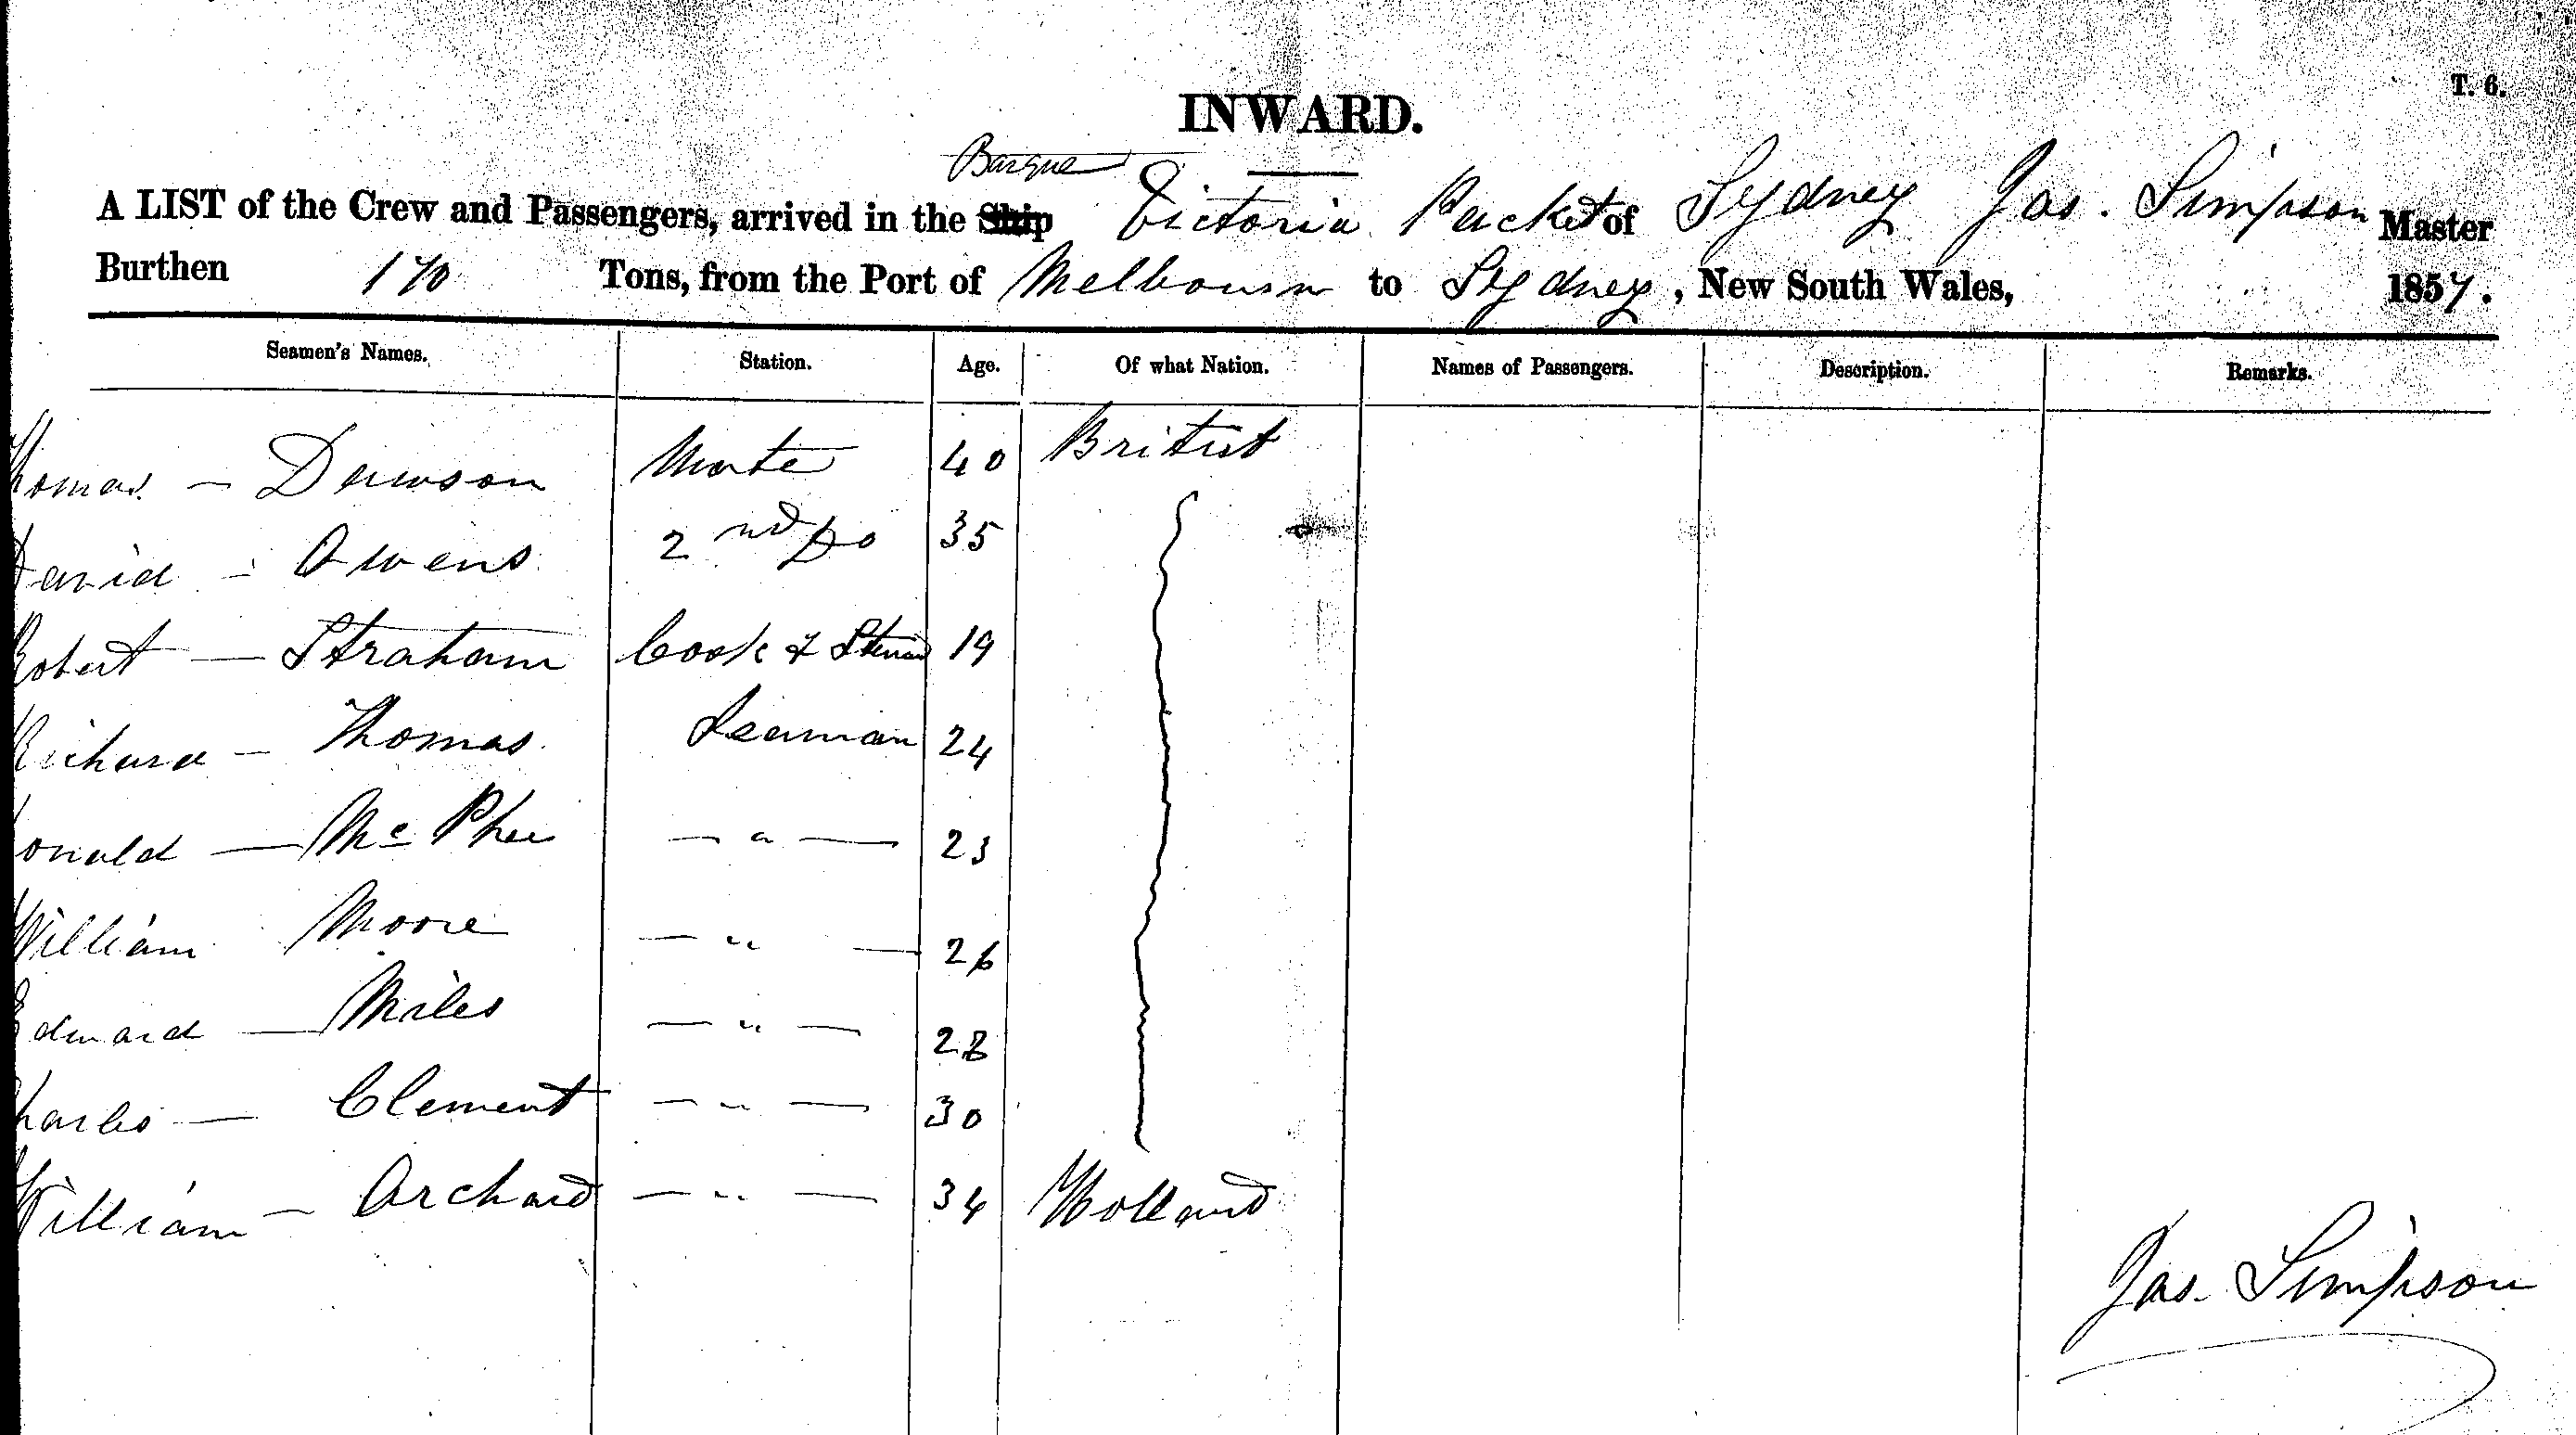 T. 6.
INWARD.
Barque
A LIST of the Crew and Passengers, arrived in the Ship Victoria Packet of Sydney Jas. Simpson Master
Burthen 170 Tons, from the Port of Melbourn to Sydney, New South Wales, 1857.
Seamen's Names. Station. Age. Of what Nation. Names of Passengers. Description. Remarks.
Thomas — Dawson Mate 40 British
David - Owens 2nd Do 35
Robert — Straham Cook & Steward 19
Richard — Thomas Seaman 24
Donald — Mc Phee — " — 23
William Moore — " — 26
Edward — Miles — " — 28
Charles — Clement — " — 30
William — Archard — " — 34 Holland
Jas. Simpson